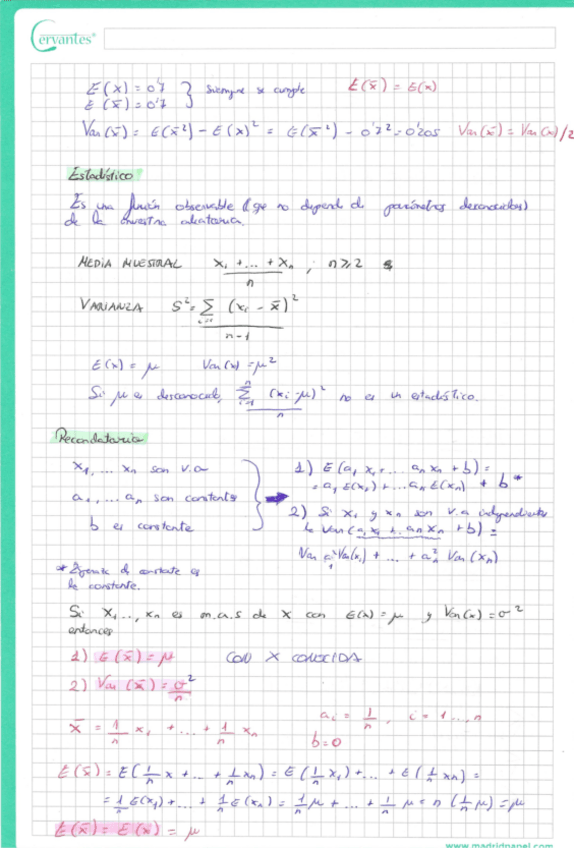 Cervantes
E(x) = 0'7 } Siempre se cumple E(x̄) = E(x)
E(x̄) = 0'7
Var(x̄) = E(x̄²) - E(x)² = E(x̄²) - 0'7² = 0'205 Var(x̄) = Var(x)/2
Estadístico
Es una función observable (que no depend de parámetros desconocidos)
de la muestra aleatoria.
MEDIA MUESTRAL x₁ + ... + xₙ / n ; n ≥ 2
VARIANZA S² = Σ (xᵢ - x̄)² / n-1
E(x) = μ Var(x) = μ²
Si μ es desconocido, Σ (xᵢ - μ)² / n no es un estadístico.
Recordatorio
x₁, ... xₙ son v.a
a₁, ... aₙ son constantes
b es constante
1) E(a₁ x₁ + ... aₙ xₙ + b) =
= a₁ E(x₁) + ... aₙ E(xₙ) + b *
2) Si x₁ y xₙ son v.a independientes
la Var(a₁ x₁ + .. aₙ xₙ + b) =
Var a₁² Var(x₁) + ... + aₙ² Var(xₙ)
* de constate es
la constante.
Si x₁ .., xₙ es m.a.s de x con E(x) = μ y Var(x) = σ²
entonces
1) E(x̄) = μ CON X CONOCIDA
2) Var(x̄) = σ²/n
x̄ = 1/n x₁ + ... + 1/n xₙ
aᵢ = 1/n , i = 1 ..., n
b = 0
E(x̄) = E(1/n x + ... + 1/n xₙ) = E(1/n x₁) + ... + E(1/n xₙ) =
= 1/n E(x₁) + ... + 1/n E(xₙ) = 1/n μ + ... + 1/n μ = n (1/n μ) = μ
E(x̄) = E(x) = μ
www.madridpapel.com